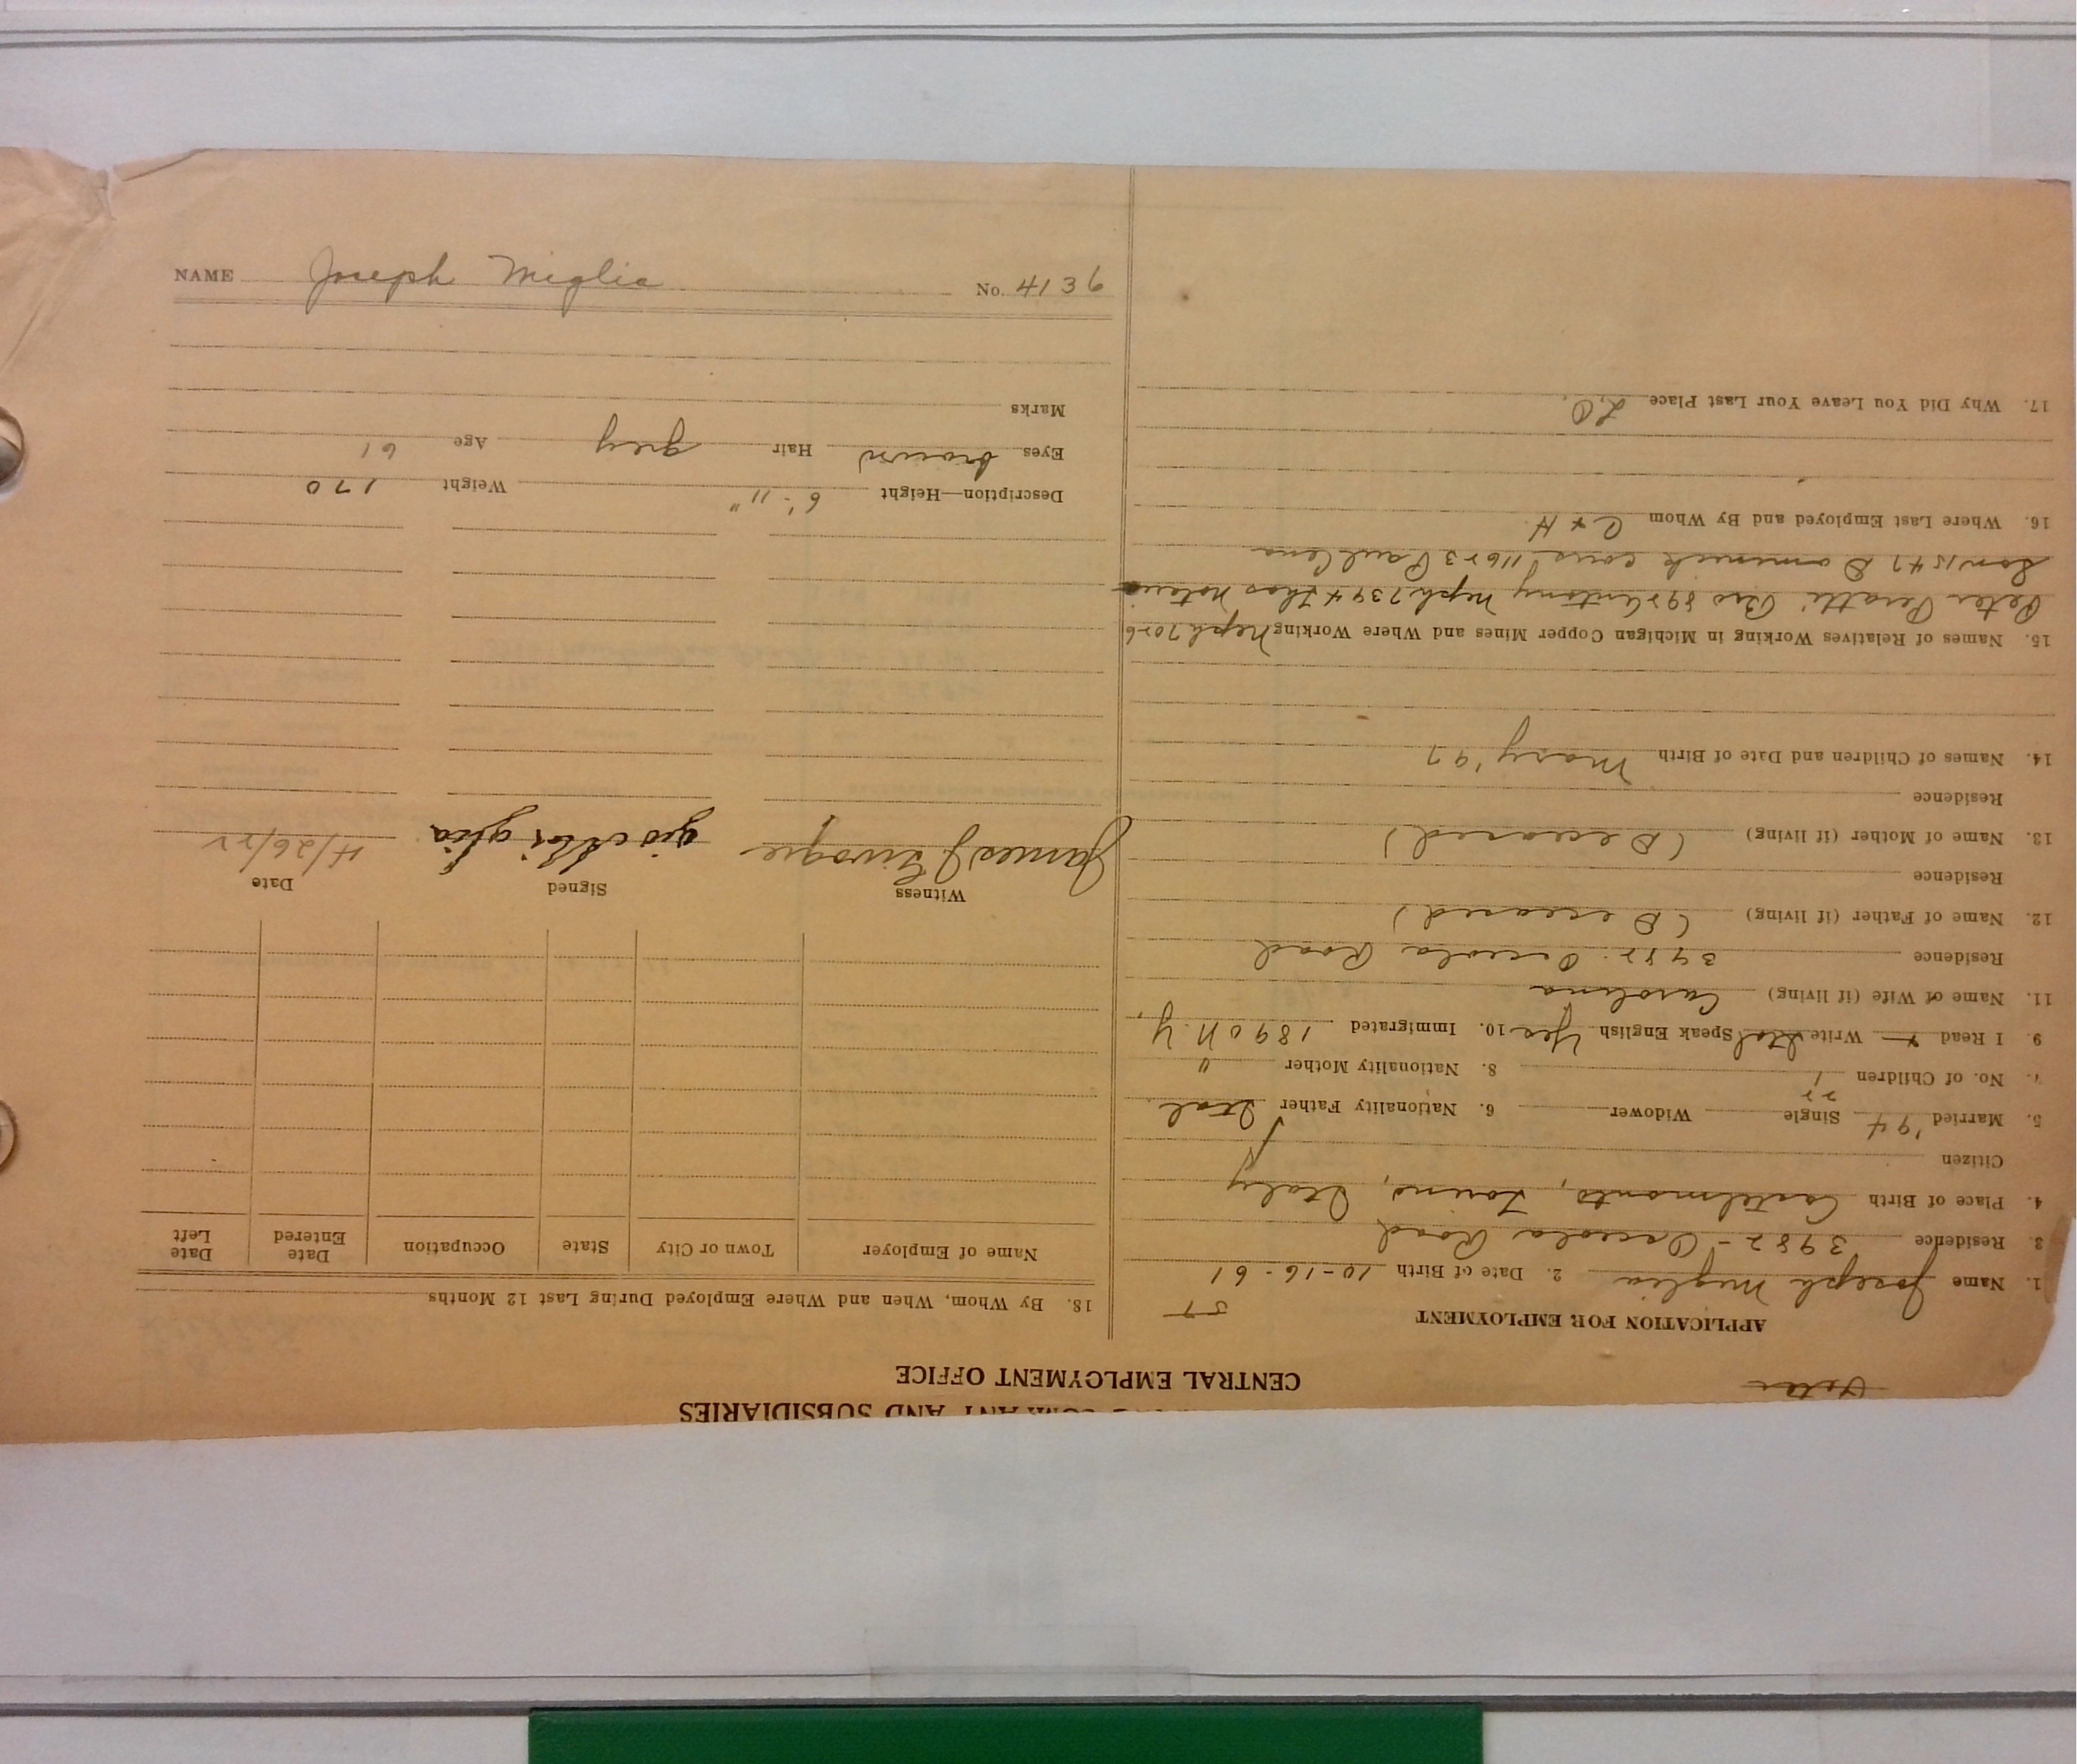 AND SUBSIDIARIES
CENTRAL EMPLOYMENT OFFICE
APPLICATION FOR EMPLOYMENT
57
1. Name Joseph Miglia 2. Date of Birth 10-16-61
3. Residence 3982 - Osceola Road
4. Place of Birth Castelmonto, Torino, Italy
Citizen
5. Married '94 Single Widower 6. Nationality Father Ital
7. No. of Children 1 8. Nationality Mother "
9. I Read Write Ital Speak English Yes 10. Immigrated 1890 N.Y.
11. Name of Wife (if living) Carolina
Residence 3982 Osceola Road
12. Name of Father (if living) (Deceased)
Residence
13. Name of Mother (if living) (Deceased)
Residence
14. Names of Children and Date of Birth Mary '97
15. Names of Relatives Working in Michigan Copper Mines and Where Working Neph 7026
Peter Antony Neph 7394 Thos
Dominick cous 11623 Paul
16. Where Last Employed and By Whom C & H
17. Why Did You Leave Your Last Place L.O.
18. By Whom, When and Where Employed During Last 12 Months
Name of Employer Town or City State Occupation Date Entered Date Left
Witness Signed Date
James J 4/26/22
Description—Height 6'-11" Weight 170
Eyes brown Hair grey Age 61
Marks
NAME Joseph Miglia No. 4136